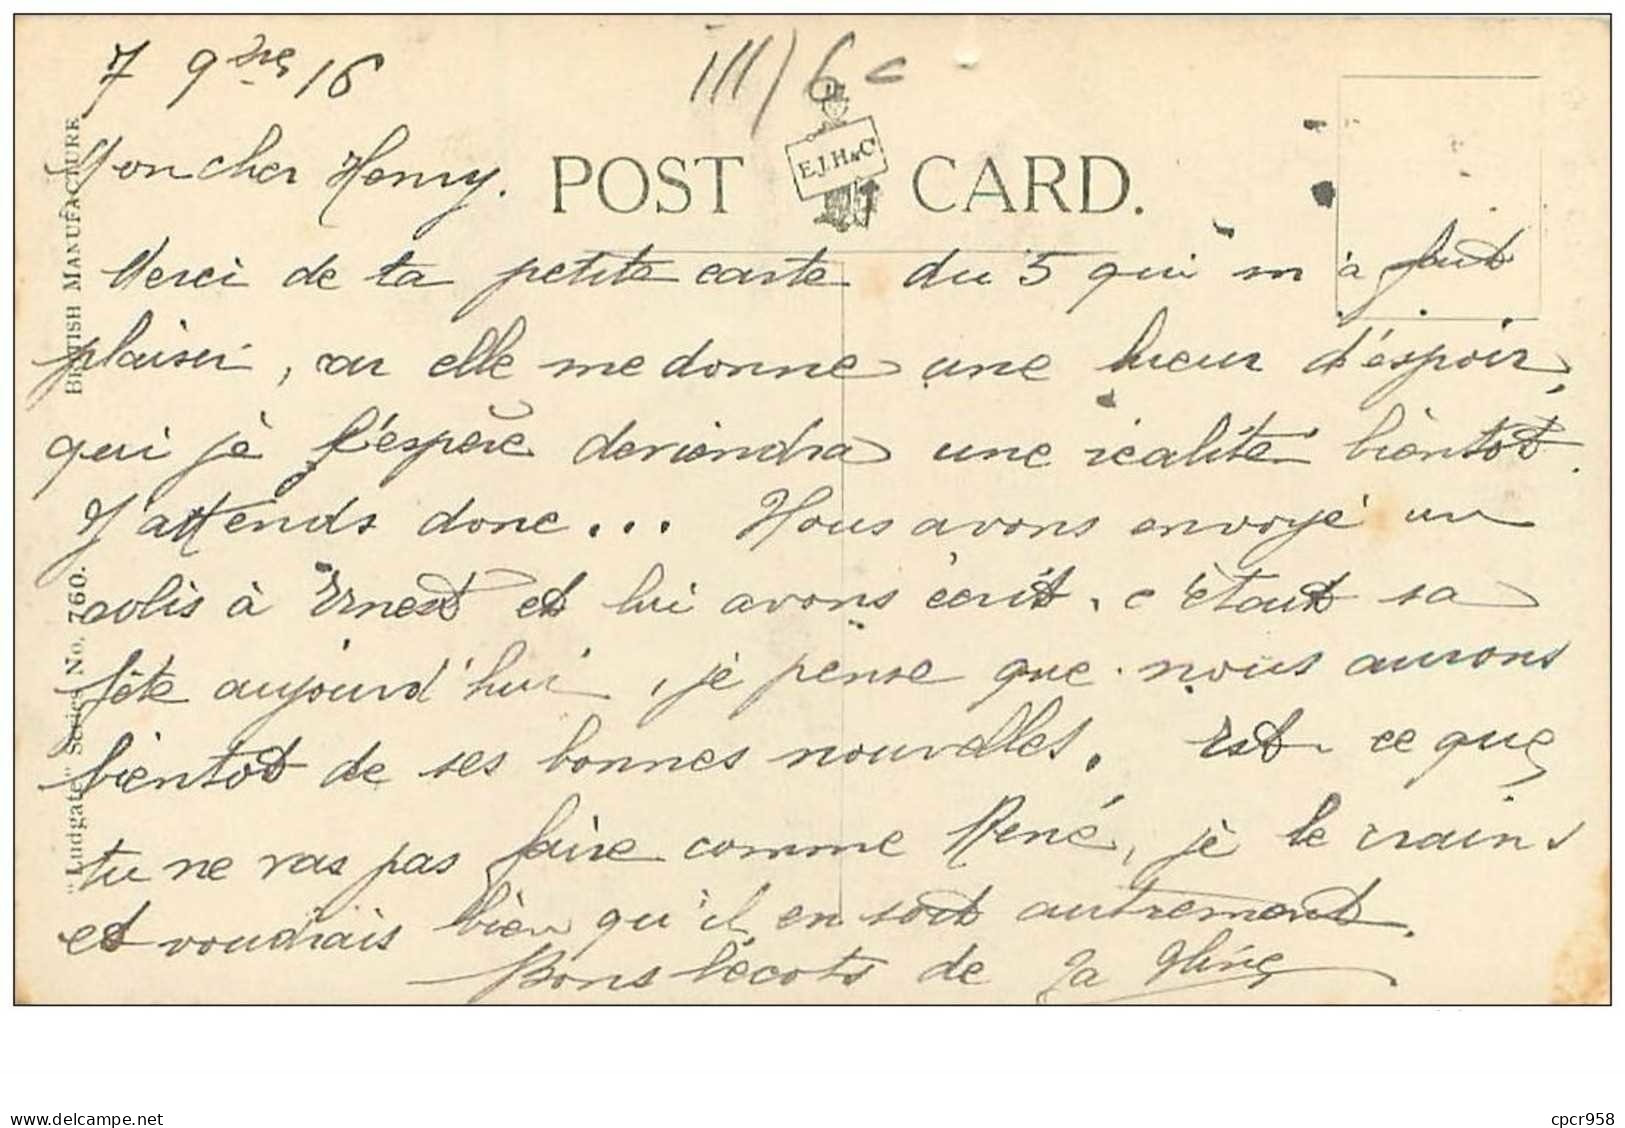 7 9bre 16
III/6c
Mon cher Henry.
POST CARD.
E.J.H & Co
Merci de ta petite carte du 5 qui m'a fait
plaisir, car elle me donne une lueur d'espoir,
qui je l'espère deviendra une réalité bientot.
J'attends donc... Nous avons envoyé un
colis à Ernest et lui avons écrit. c'était sa
fête aujourd'hui, je pense que nous aurons
bientot de ses bonnes nouvelles. Est-ce que
tu ne vas pas faire comme René, je le crains
et voudrais bien qu'il en soit autrement.
Bons bécots de ta
"Ludgate" Series No. 760.
BRITISH MANUFACTURE
https://www.delcampe.net
cpcr958